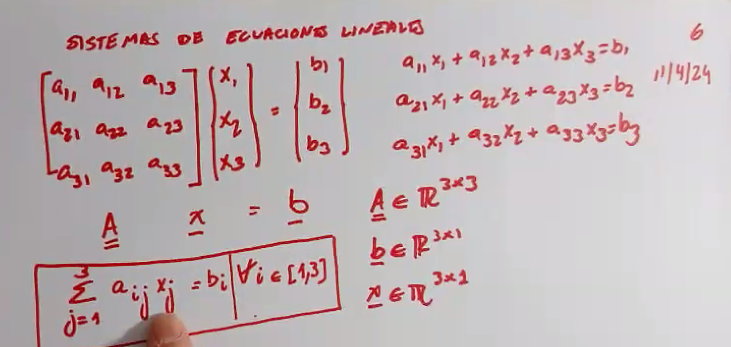 SISTEMAS DE ECUACIONES LINEALES
6
11/4/24
[a11 a12 a13] {x1} = {b1}
[a21 a22 a23] {x2} = {b2}
[a31 a32 a33] {x3} = {b3}
a11x1 + a12x2 + a13x3 = b1
a21x1 + a22x2 + a23x3 = b2
a31x1 + a32x2 + a33x3 = b3
A x = b
A ∈ ℝ^3×3
b ∈ ℝ^3×1
x ∈ ℝ^3×1
∑_{j=1}^{3} a_ij x_j = b_i | ∀i ∈ [1,3]